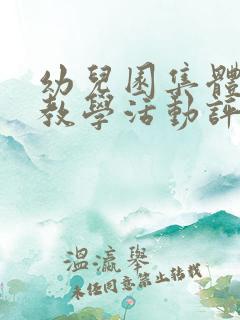 幼兒園集體
教學活動評
溫瀛舉
未經同意禁止轉載